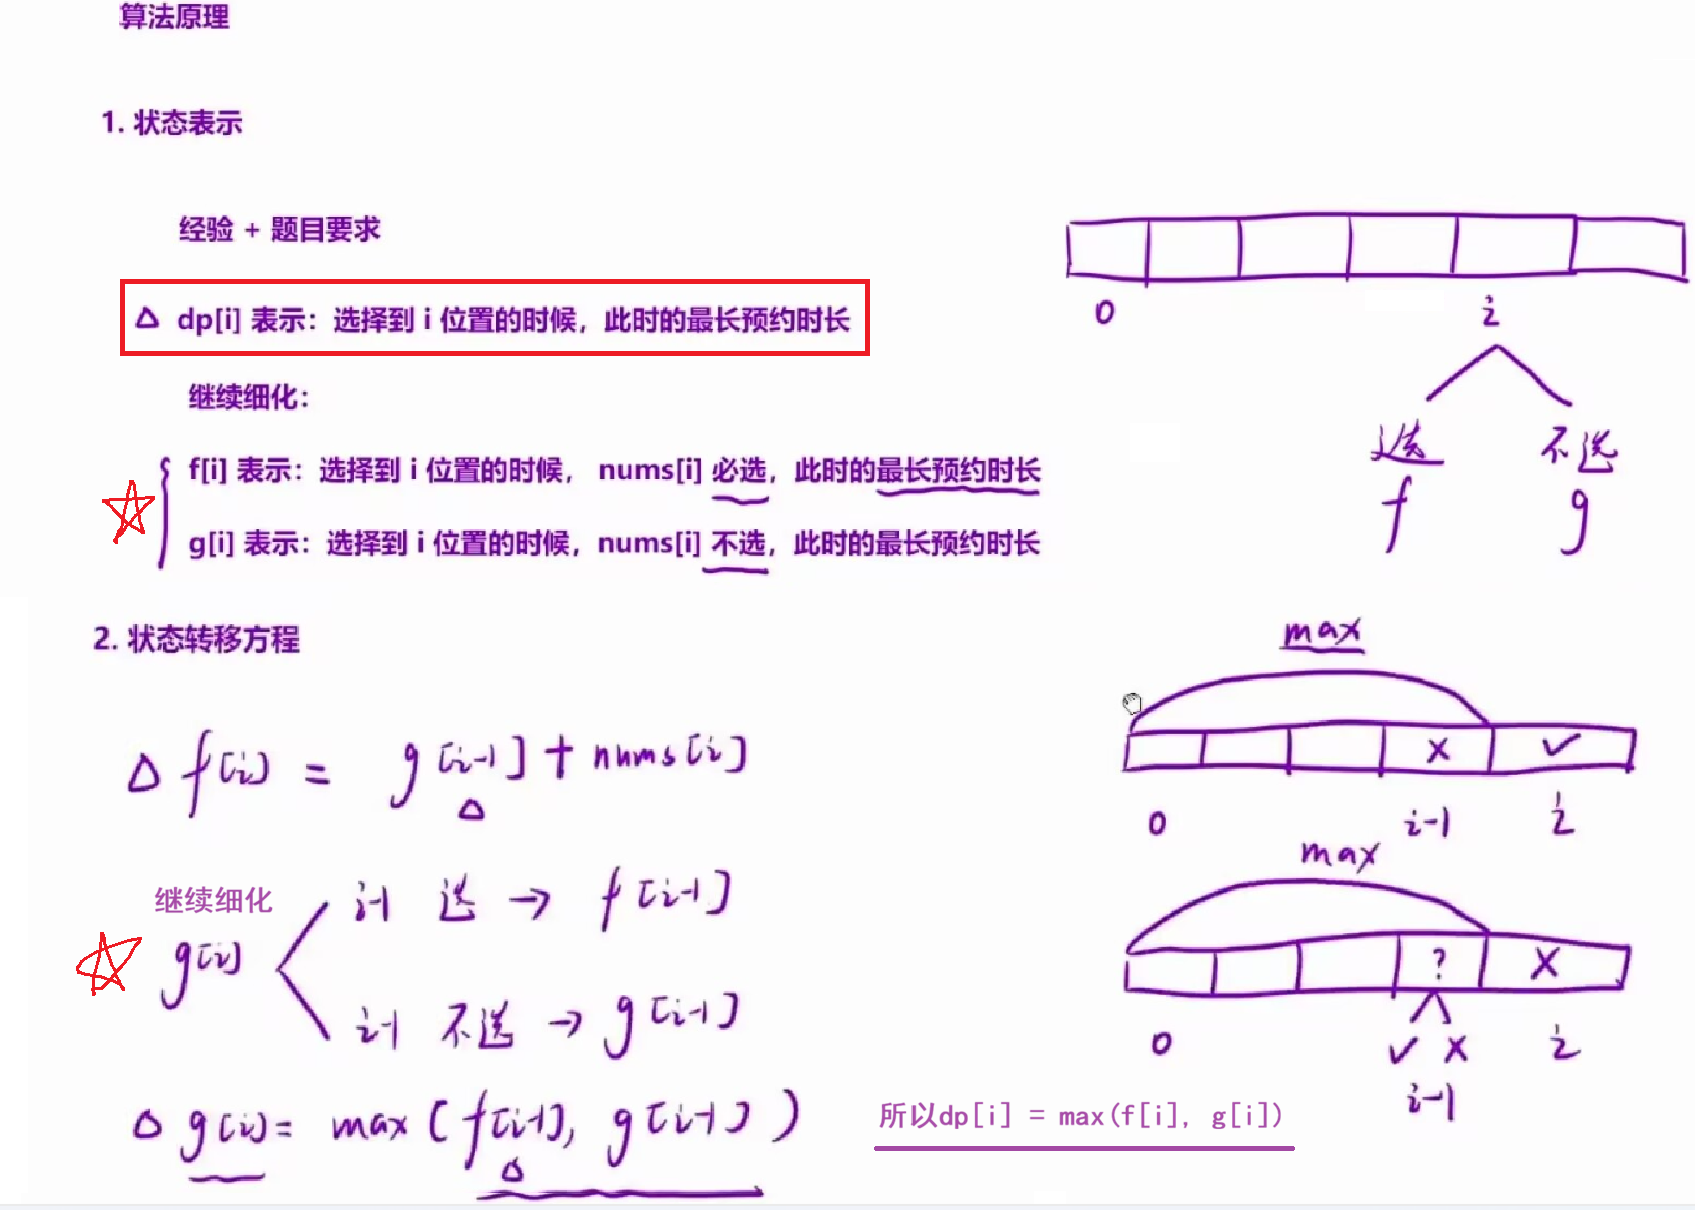 算法原理
1. 状态表示
经验 + 题目要求
△ dp[i] 表示：选择到 i 位置的时候，此时的最长预约时长
继续细化：
f[i] 表示：选择到 i 位置的时候， nums[i] 必选，此时的最长预约时长
g[i] 表示：选择到 i 位置的时候，nums[i] 不选，此时的最长预约时长
0 i
选 不选
f g
2. 状态转移方程
△ f[i] = g[i-1] + nums[i]
△
继续细化
g[i]
i-1 选 → f[i-1]
i-1 不选 → g[i-1]
△ g[i] = max(f[i-1], g[i-1])
△
max
x ✓
0 i-1 i
max
? x
0 ✓ x i
i-1
所以dp[i] = max(f[i], g[i])